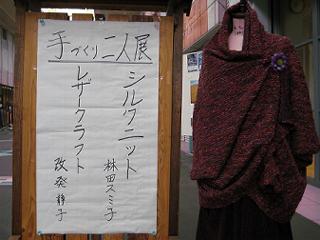 手づくり二人展
シルクニット
林田スミ子
レザークラフト
改発静子